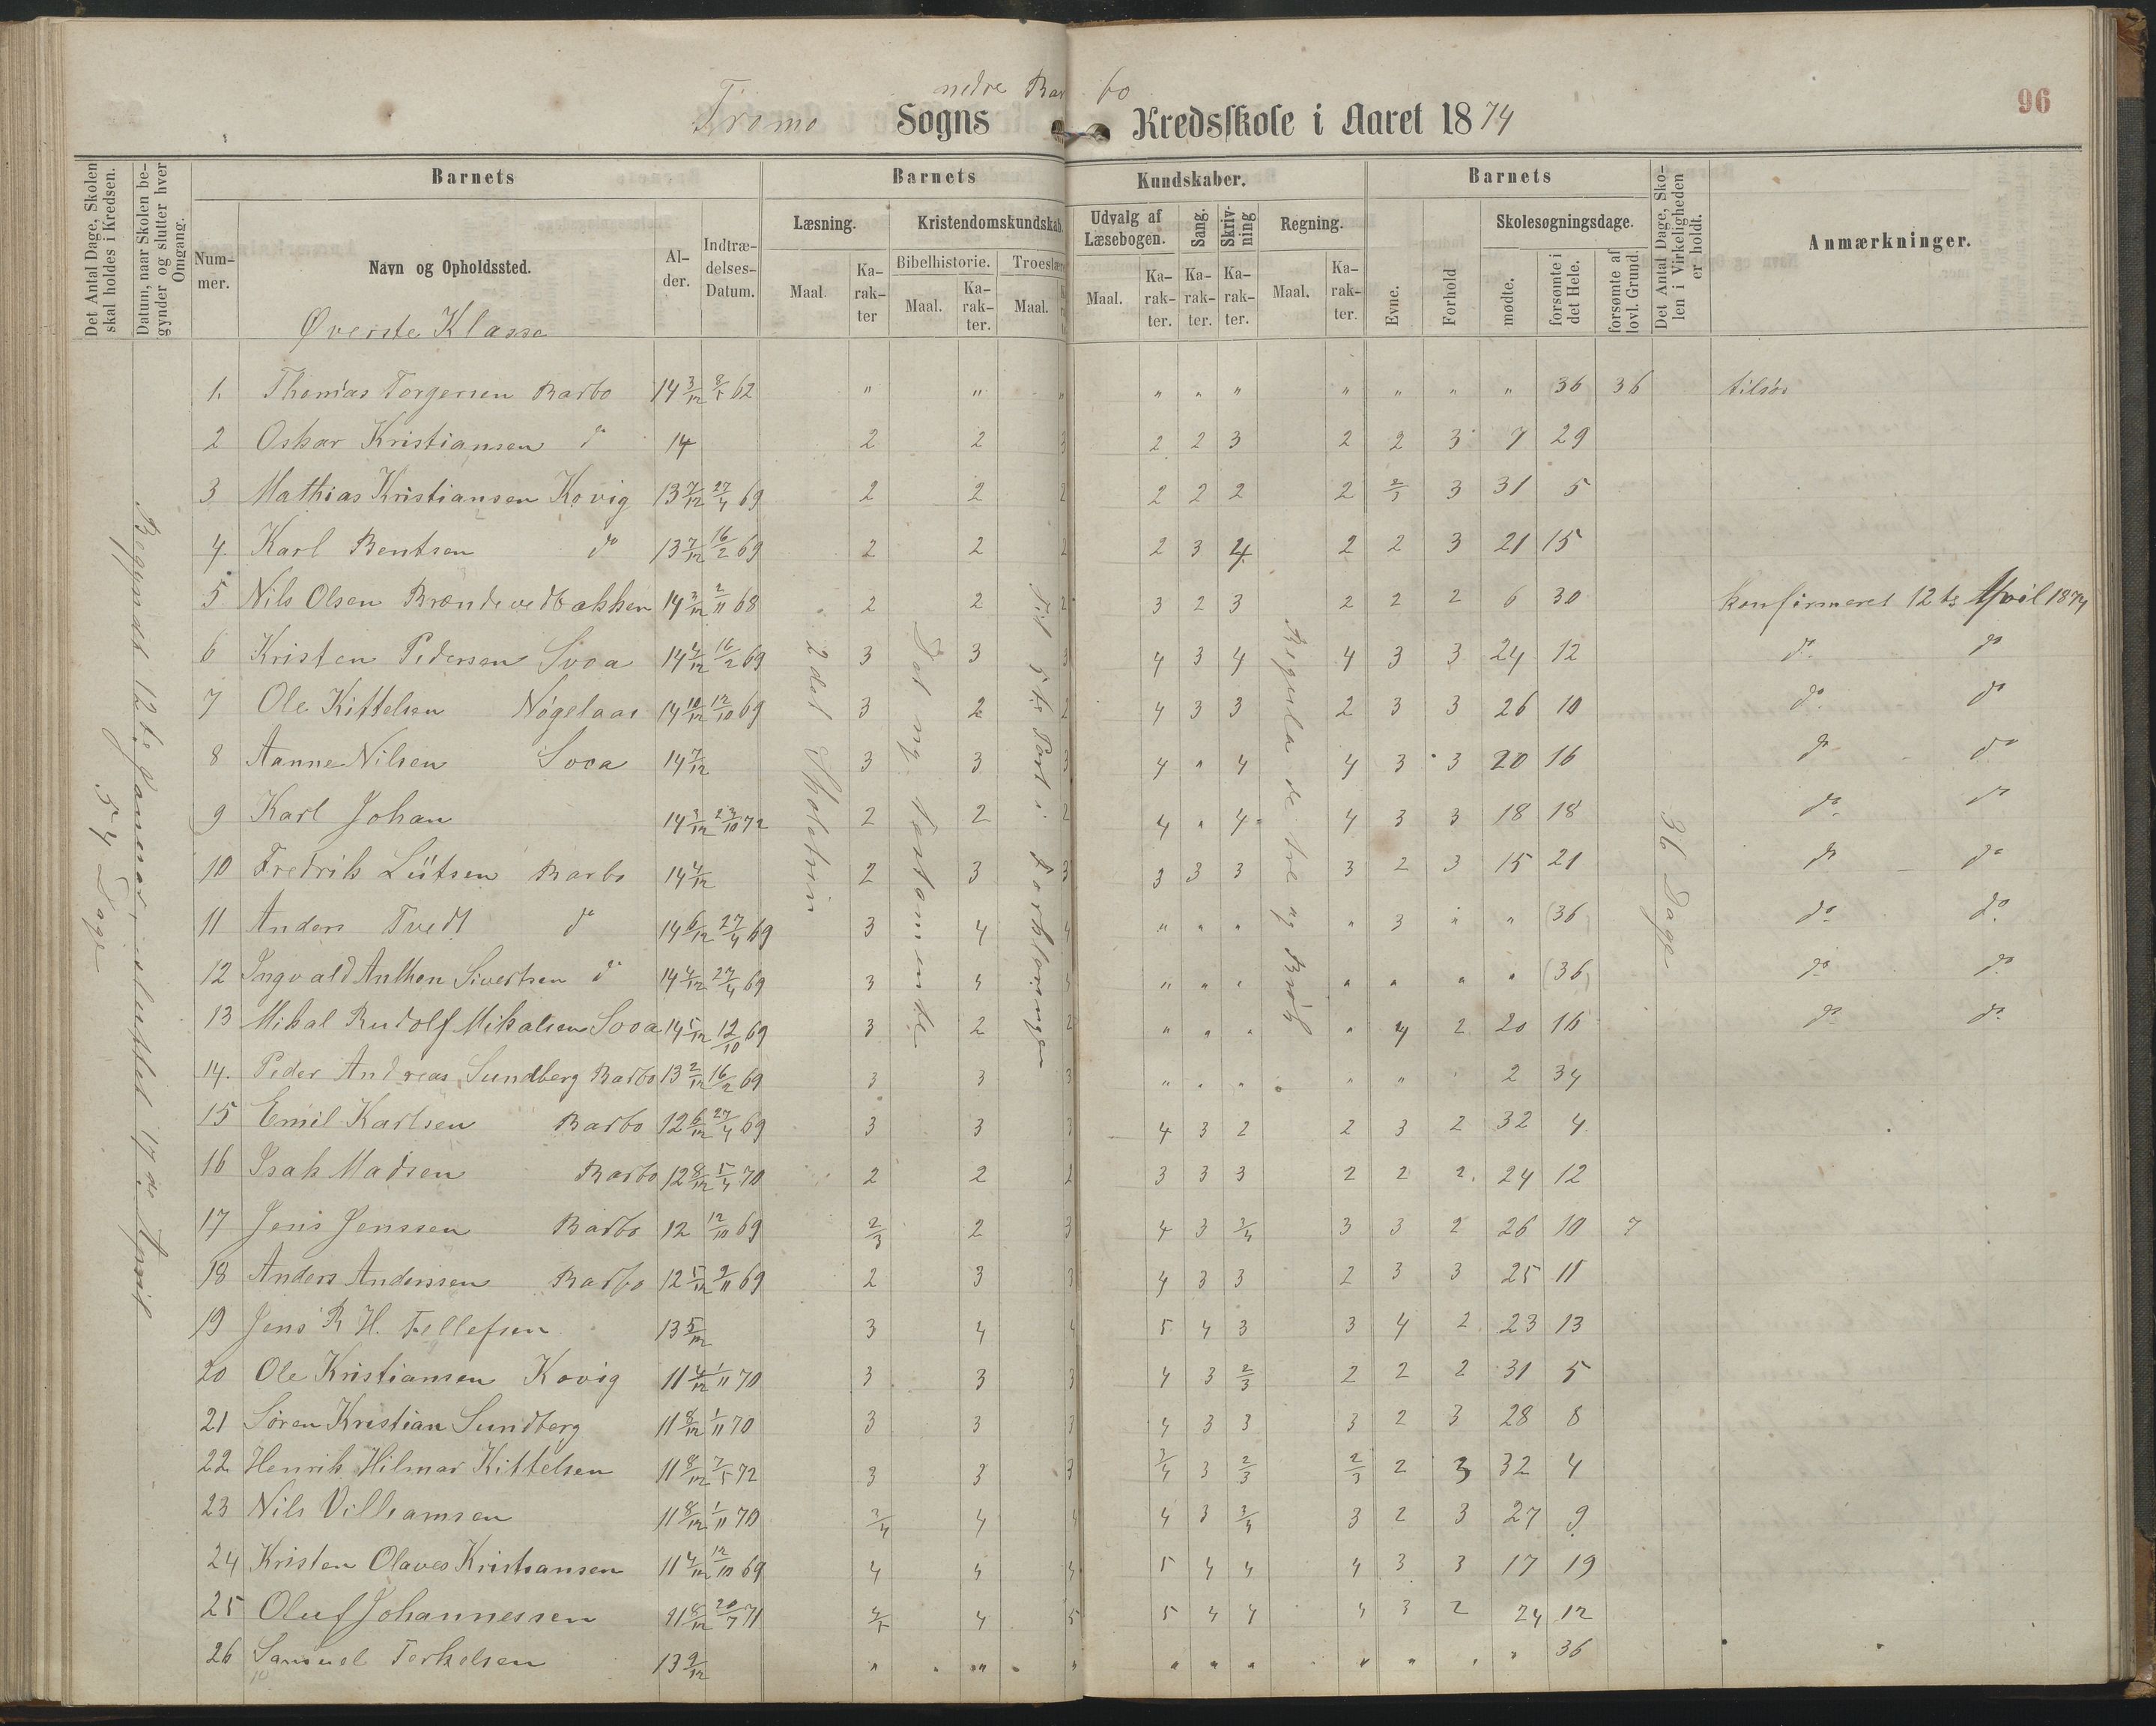 nedre Barbo
Tromø Sogns Kredsskole i Aaret 1874
96
Det Antal Dage, Skolen skal holdes i Kredsen.
Datum, naar Skolen begynder og slutter hver Omgang.
Barnets
Barnets Kundskaber.
Barnets
Det Antal Dage, Skolen i Virkeligheden er holdt.
Anmærkninger.
Nummer.
Navn og Opholdssted.
Alder.
Indtrædelses-Datum.
Læsning.
Kristendomskundskab.
Udvalg af Læsebogen.
Sang.
Skrivning
Regning.
Evne.
Forhold
Skolesøgningsdage.
Bibelhistorie.
Troeslære
Maal.
Karakter
Maal.
Karakter.
Maal.
Maal.
Karakter.
Karakter.
Karakter.
Maal.
Karakter.
mødte.
forsømte i det Hele.
forsømte af lovl. Grund.
Øverste Klasse
54 Dage
Begyndt 12te Januar, sluttet 17de April
2det Skoletrin
Det ny Testamente
Til 5te Part i Forklaringen
Regula de tre og Brøk
36 Dage
1. Thomas Torgersen Barbo 14 3/12 8/5 62 " " " " " " " " " " 36 36 tilsøs
2 Oskar Kristiansen do 14 2 2 3 2 2 3 2 2 3 7 29
3 Mathias Kristiansen Kovig 13 7/12 27/4 69 2 2 2 2 2 2 2 2/3 3 31 5
4. Karl Bentsen do 13 7/12 16/2 69 2 2 2 2 3 4 2 2 3 21 15
5 Nils Olsen Brændevedbakken 14 3/12 2/11 68 2 2 2 3 2 3 2 2 2 6 30 Konfirmeret 12te April 1874
6 Kristen Pedersen Sooa 14 4/12 16/2 69 3 3 3 4 3 4 4 3 3 24 12 do do
7 Ole Kittelsen Nøgelaas 14 10/12 12/10 69 3 2 2 4 3 3 2 3 3 26 10 do do
8 Aanne Nilsen Sooa 14 7/12 3 3 3 4 " 4 4 3 3 20 16 do do
9 Karl Johan 14 3/12 23/10 72 2 2 2 4 " 4 4 3 3 18 18 do do
10 Fredrik Lütsen Barbo 14 4/12 2 3 3 3 3 3 3 2 3 15 21 do do
11 Anders Tvedt do 14 6/12 27/4 69 3 4 4 " " " " 3 " " (36) do do
12 Ingvald Anthon Sivertsen do 14 4/12 27/4 69 3 4 4 " " " " " " " (36) do do
13 Mikal Rudolf Mikalsen Sooa 14 5/12 12/10 69 3 2 2 " " " " 4 2 20 16 do do
14. Peder Andreas Sundberg Barbo 13 2/12 16/2 69 3 3 3 " " " " " " 2 34
15 Emil Karlsen Barbo 12 6/12 27/4 69 3 3 3 4 3 2 2 3 2 32 4
16 Isak Madsen Barbo 12 8/12 5/4 70 2 2 2 3 3 3 2 2 2 24 12
17 Jens Jenssen Barbo 12 12/10 69 2/3 2 3 4 3 3/4 3 3 2 26 10 7
18 Anders Anderssen Barbo 12 5/12 9/11 69 2 3 3 4 3 3 2 3 3 25 11
19 Jens R H. Tellefsen 13 5/12 3 4 4 5 4 3 3 4 2 23 13
20 Ole Kristiansen Kovig 11 4/12 1/11 70 3 3 3 4 3 2/3 2 2 2 31 5
21 Søren Kristian Sundberg 11 8/12 1/11 70 3 3 3 4 3 3 3 2 3 28 8
22 Henrik Hilmar Kittelsen 11 8/12 7/5 72 3 3 3 3/4 3 2/3 2/3 2 3 32 4
23 Nils Villiamsen 11 8/12 1/11 70 3/4 4 4 4 3 3/4 3 2 3 27 9
24 Kristen Olaves Kristiansen 11 4/12 12/10 69 4 4 4 5 4 4 4 3 3 17 19
25 Oluf Johannessen 11 8/12 20/7 71 4/5 4 5 5 4 4 4 3 2 24 12
26 Samuel Terkelsen 13 9/12 " " " " " " " " " " 36